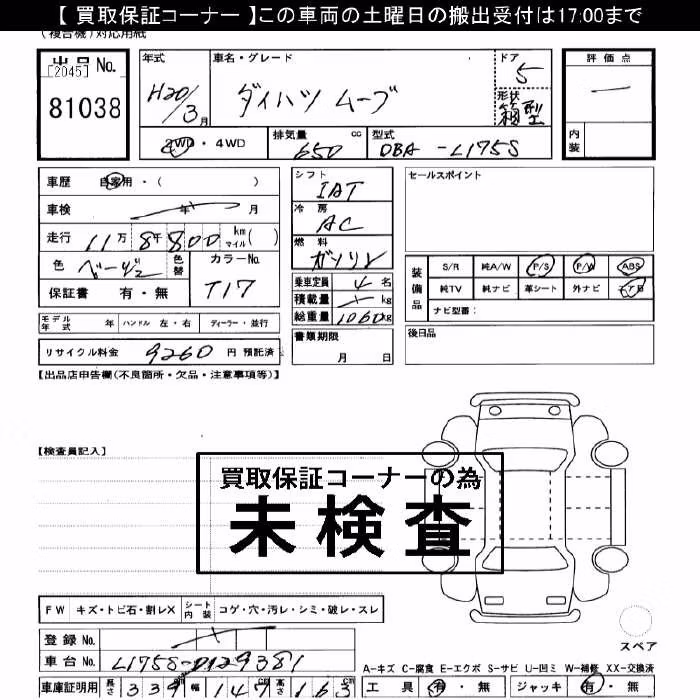 【 買取保証コーナー 】この車両の土曜日の搬出受付は17:00まで
(複合機)対応用紙
出品 No.
[2045]
81038
年式
H20/3月
車名・グレード
ダイハツ ムーブ
ドア
5
形状
箱型
評価点
内装
2WD ・ 4WD
排気量 cc
650
型式
DBA -L175S
車歴 自家用・( )
車検 年 月
走行 11万 8千 800 km マイル( )
色 ベージュ 色替
カラーNo.
T17
保証書 有・無
シフト
IAT
冷房
AC
燃料
ガソリン
乗車定員 4 名
積載量 kg
総重量 1060 kg
書類期限
月 日
セールスポイント
装備品
S/R 純A/W P/S P/W ABS
純TV 純ナビ 革シート 外ナビ エアB
ナビ型番:
後日品
モデル年式 年 ハンドル 左・右 ディーラー・並行
リサイクル料金 9260 円 預託済
【出品店申告欄(不良箇所・欠品・注意事項等)】
【検査員記入】
買取保証コーナーの為
未検査
FW キズ・トビ石・割レX シート内装 コゲ・穴・汚レ・シミ・破レ・スレ
登録 No.
車台 No. L175S-0129381
スペア
A-キズ C-腐食 E-エクボ S-サビ U-凹ミ W-補修 XX-交換済
車庫証明用 長さ 339 cm 幅 147 cm 高さ 163 cm
工具 有・無 ジャッキ 有・無